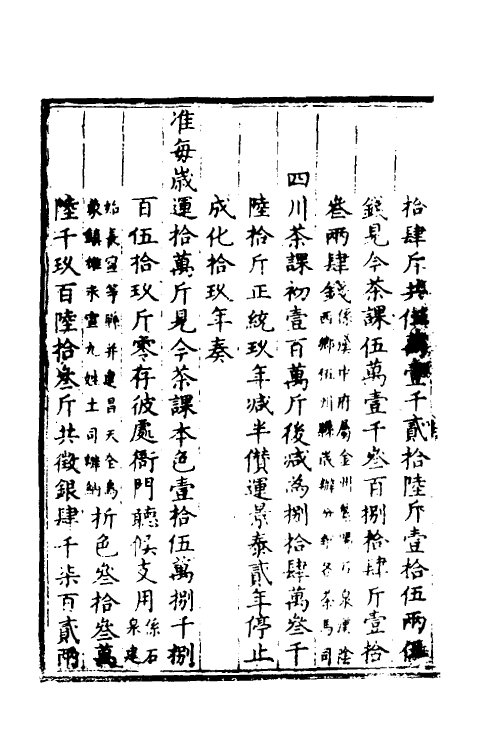 拾肆斤共徵壹千貳拾陸斤壹拾伍兩伍
錢見今茶課伍萬壹千叁百捌拾肆斤壹拾
叁兩肆錢係漢中府屬金州紫陽石泉漢陰西鄉伍州縣歲辦分解各茶馬司
四川茶課初壹百萬斤後減為捌拾肆萬叁千
陸拾斤正統玖年減半儹運景泰貳年停止
成化拾玖年奏
准每歲運拾萬斤見今茶課本色壹拾伍萬捌千捌
百伍拾玖斤零存彼處衙門聽候支用係石泉建
始長寧等縣并建昌天全烏蒙鎮雄永寧九姓土司辦納折色叁拾叁萬
陸千玖百陸拾叁斤共徵銀肆千柒百貳兩